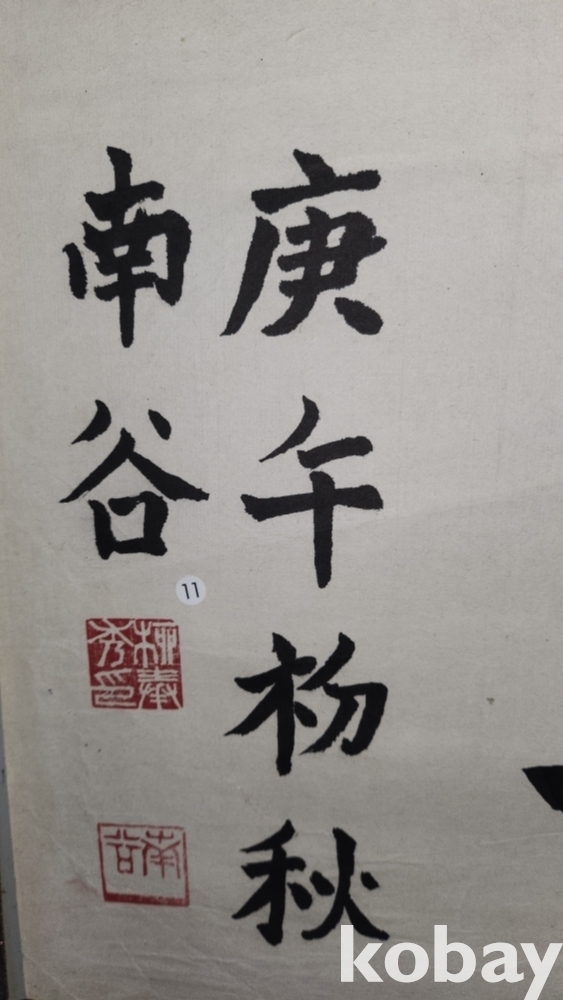 庚午初秋
南谷
11
柳奉秀印
南谷
kobay